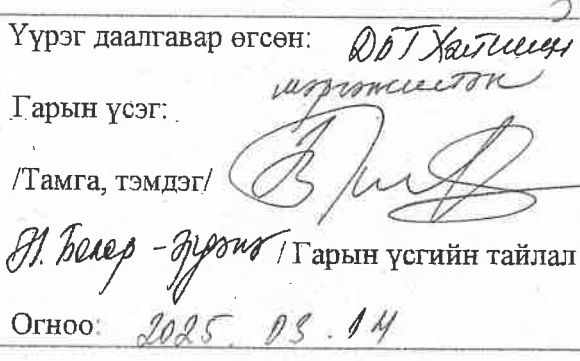 Үүрэг даалгавар өгсөн: ДБТ Хэлтсийн
мэргэжилтэн
Гарын үсэг:
/Тамга, тэмдэг/
Н. Болор - Эрдэнэ / Гарын үсгийн тайлал
Огноо: 2025. 03. 14